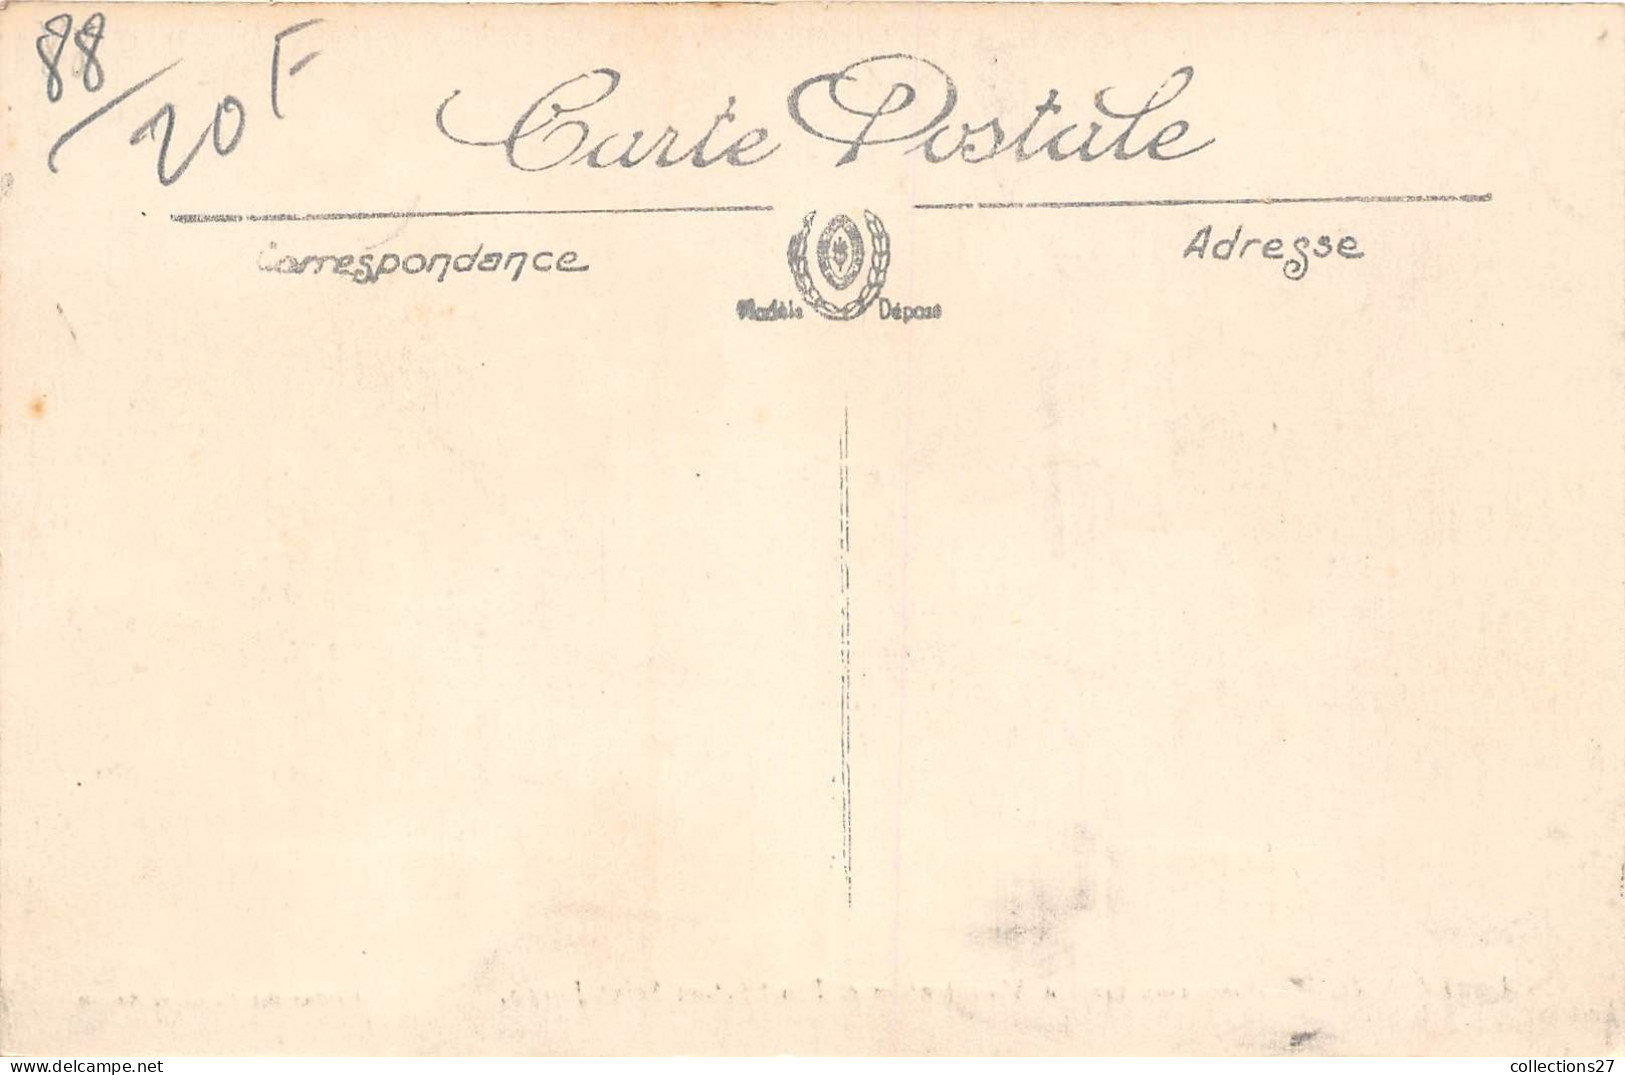 88
20F
Carte Postale
Correspondance
Adresse
Modèle Déposé
collections27